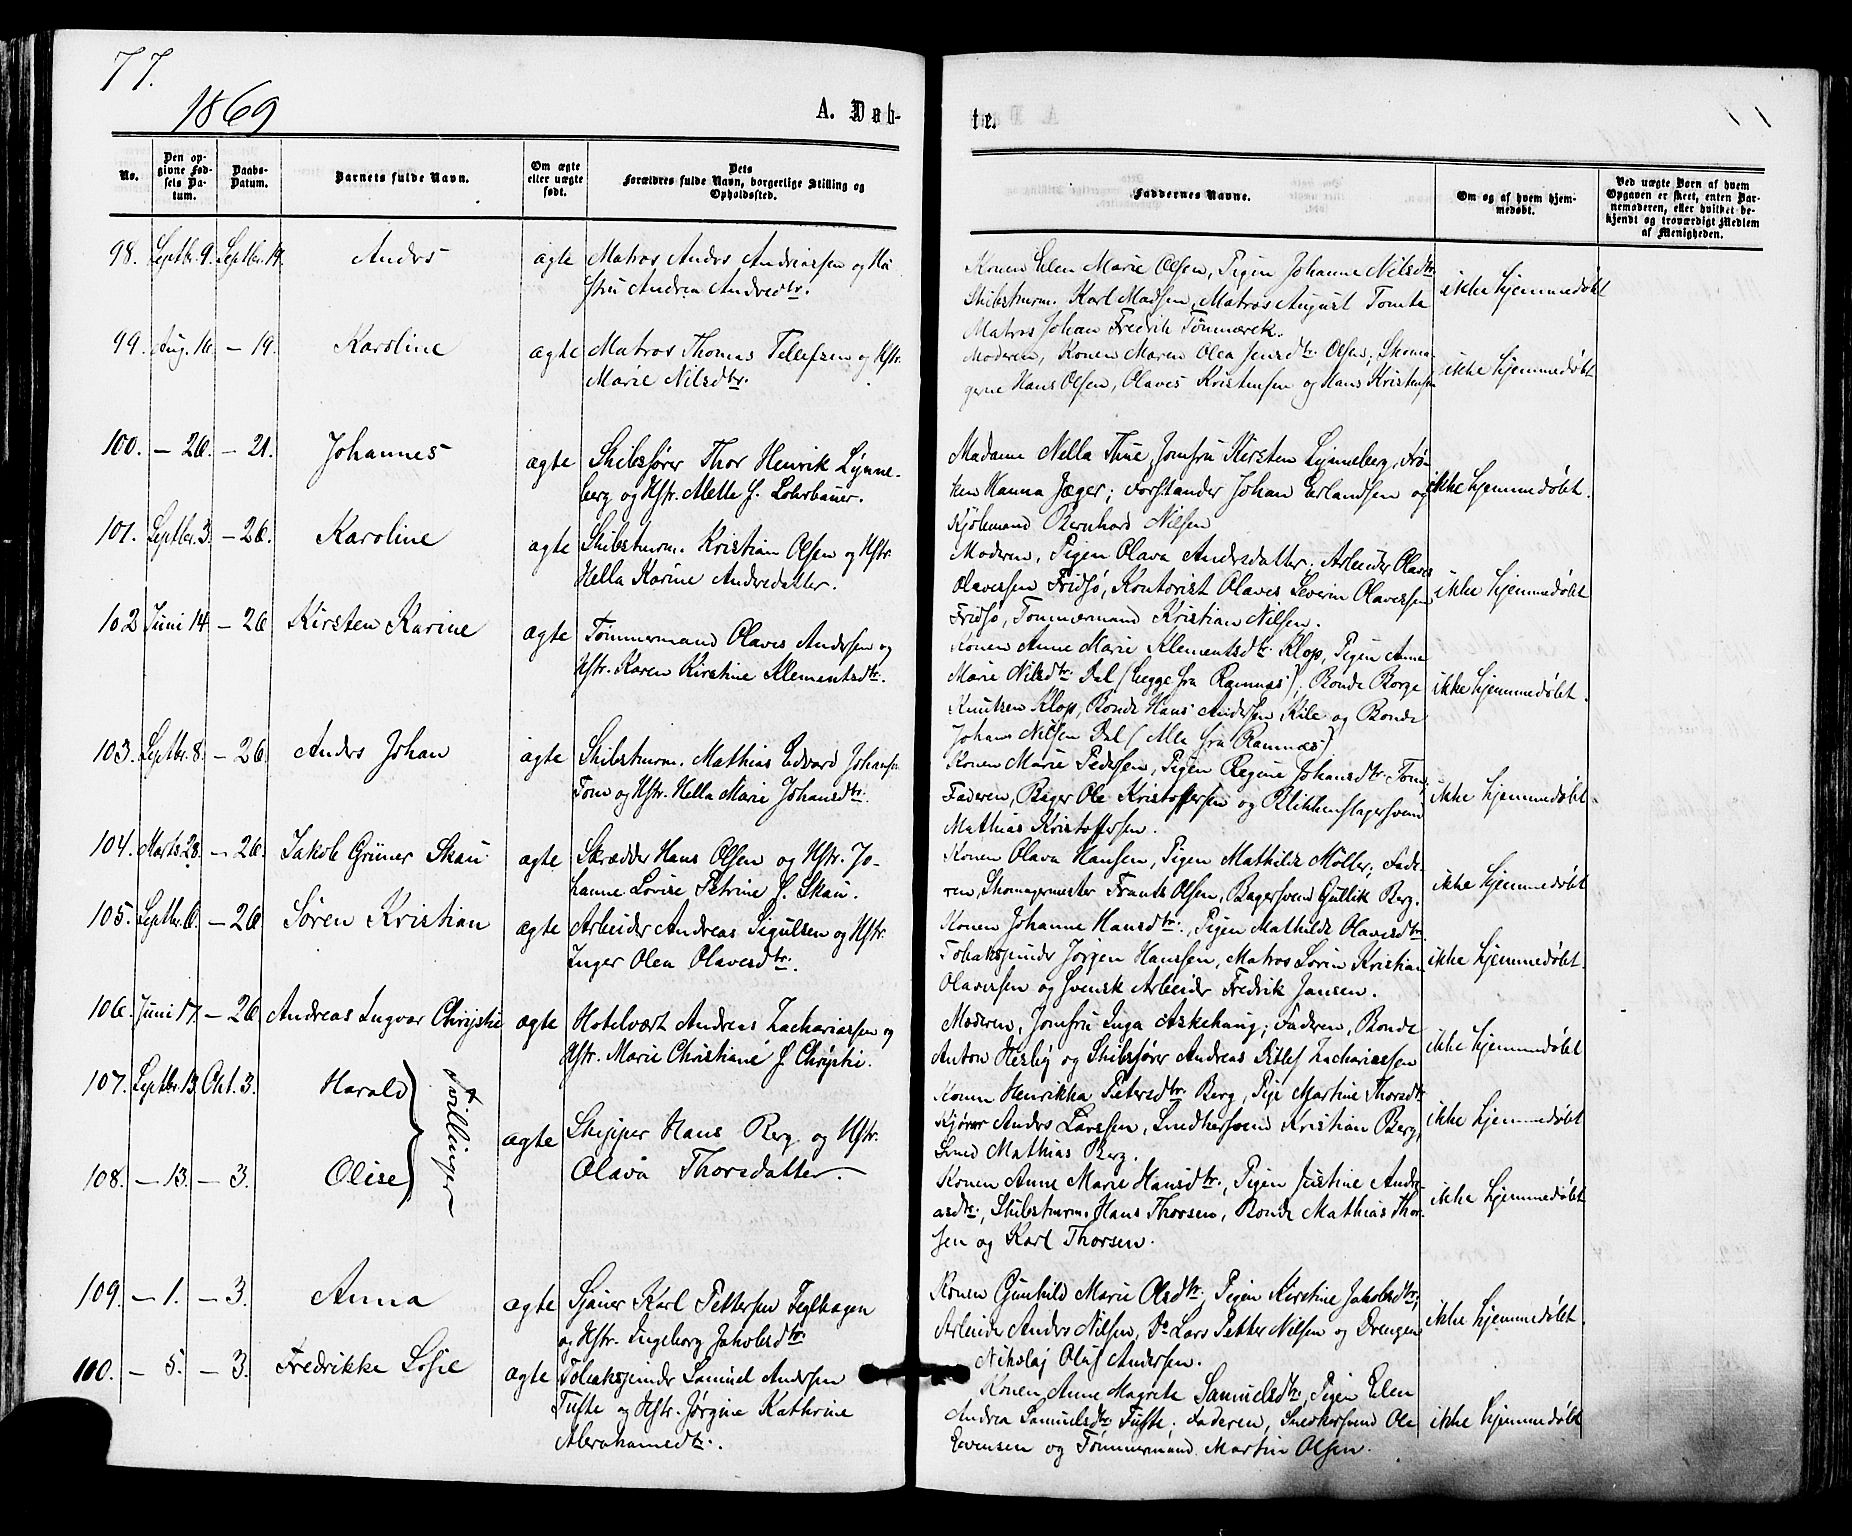 77.
1869
A. Døb-
te.
No.
Den op-
givne Fød-
sels Da-
tum.
Daabs-
Datum.
Barnets fulde Navn.
Om ægte
eller uægte
født.
Dets
Forældres fulde Navn, borgerlige Stilling og
Opholdssted.
Faddernes Navne.
Om og af hvem hjem-
medøbt.
Ved uægte Børn af hvem
Opgaven er skeet, enten Bar-
nemoderen, eller hvilket be-
kjendt og troværdigt Medlem
af Menigheden.
98. Septbr. 9. Septbr. 19. Andrs ægte Matros Andrs Andriassen og Hu
stru Andrea Andredtr.
Konen Elen Marie Olsen, Pigen Johanne Nilsdtr.
Skibsturm. Karl Madsen, Matros August Tomte
Matros Johan Fredrik Tønmerek.
ikke hjemmedøbt
99. Aug. 16. — 19. Karoline ægte Matros Thomas Tellefsen og Hstr.
Marie Nilsdtr.
Moderen, Konen Maren Olea Jensdtr. Olsen; Skoma-
gerne Hans Olsen, Olaves Kristensen og Hans Kristensen
ikke hjemmedøbt
100. — 26. — 21. Johannes ægte Skibsfører Thor Henrik Lynne-
berg og Hstr. Mette f. Lohrbauer.
Madame Nella Thue, Jomfru Kirsten Lynneberg, Frø-
ken Hanna Jæger; Forstander Johan Erlandsen og
Kjøbmand Bernhard Nilsen
ikke hjemmedøbt.
101. Septbr. 3. — 26. Karoline ægte Skibsturm. Kristian Olsen og Hstr.
Hella Karine Andredatter.
Moderen, Pigen Olava Andrsdatter; Arbeider Olaves
Olavessen Fridsø, Kontorist Olaves Severin Olavessen
Fridsø, Tømmermand Kristian Nilsen.
ikke hjemmedøbt
102 Juni 14. — 26. Kirsten Karine ægte Tømmermand Olaves Andersen og
Hstr. Karen Kirstine Klementsdtr.
Konen Anne Marie Klementsdtr. Klop, Pigen Anne
Marie Nilsdtr. Dal (begge fra Ramnæs), Bonde Borge
Knutsen Klop, Bonde Hans Andersen Kile og Bonde
Johans Nilsen Dal (Alle fra Ramnæs)
ikke hjemmedøbt.
103. Septbr. 8. — 26. Andrs Johan ægte Skibsturm. Mathias Edvard Johansen
Tom og Hstr. Hella Marie Johansdtr.
Konen Marie Pedersen, Pigen Regine Johansdtr. Tom,
Faderen, Bager Ole Kristoffersen og Blikkenslagersvend
Mathias Kristoffersen.
ikke hjemmedøbt.
104. Marts 28. — 26. Jakob Grüner Skau ægte Skrædder Hans Olsen og Hstr. Jo-
hanne Lovise Petrine f. Skau.
Konen Olava Hansen, Pigen Mathilde Møller; Fade-
ren, Skomagermester Frants Olsen, Bagersvend Gullik Berg.
ikke hjemmedøbt
105. Septbr. 6. — 26. Søren Kristian ægte Arbeider Andreas Sigulsen og Hstr.
Inger Olea Olavesdtr.
Konen Johanne Hansdtr., Pigen Mathilde Olavesdtr.
Tobaksspinder Jørgen Hanssen, Matros Sørin Kristian
Olavessen og svensk Arbeider Fredrik Jansen.
ikke hjemmedøbt.
106. Juni 17. — 26. Andreas Ingvar Chrystie ægte Hotelvært Andreas Zachariassen og
Hstr. Marie Christiane f. Chrystie.
Moderen, Jomfru Inga Askehaug; Faderen, Bonde
Anton Hesby og Skibsfører Andreas Ditlef Zachariassen
ikke hjemmedøbt
107. Septbr. 13. Okt. 3. Harald
Tvillinger
ægte Skipper Hans Berg og Hstr.
Olava Thorsdatter.
Konen Henrikka Petersdtr. Berg, Pige Martine Thorsdtr
Kjører Andrs Larssen, Smedkersvend Kristian Berg,
Smed Mathias Berg.
ikke hjemmedøbt
108. — 13. — 3. Olise
Konen Anne Marie Hansdtr., Pigen Justine Andre-
asdtr., Skibsturm. Hans Thorsen, Bonde Mathias Thor-
sen og Karl Thorsen.
ikke hjemmedøbt
109. — 1. — 3. Anna ægte Sjauer Karl Pettersen Teglhagen
og Hstr. Ingeborg Jakobsdtr.
Konen Gunhild Marie Olsdtr, Pigen Kirstine Jakobsdtr;
Arbeider Andrs Nilsen, Do Lars Petter Nilsen og Drengen
Nikolaj Oluf Andersen.
ikke hjemmedøbt.
100. — 5. — 3. Fredrikke Sofie ægte Tobaksspinder Samuel Andersen
Tufte og Hstr. Jørgine Kathrine
Abrahamsdtr.
Konen Anne Magrete Samuelsdtr, Pigen Elen
Andrea Samuelsdtr. Tufte; Faderen, Snedkersvend Ole
Evensen og Tømmermand Martin Olsen.
ikke hjemmedøbt